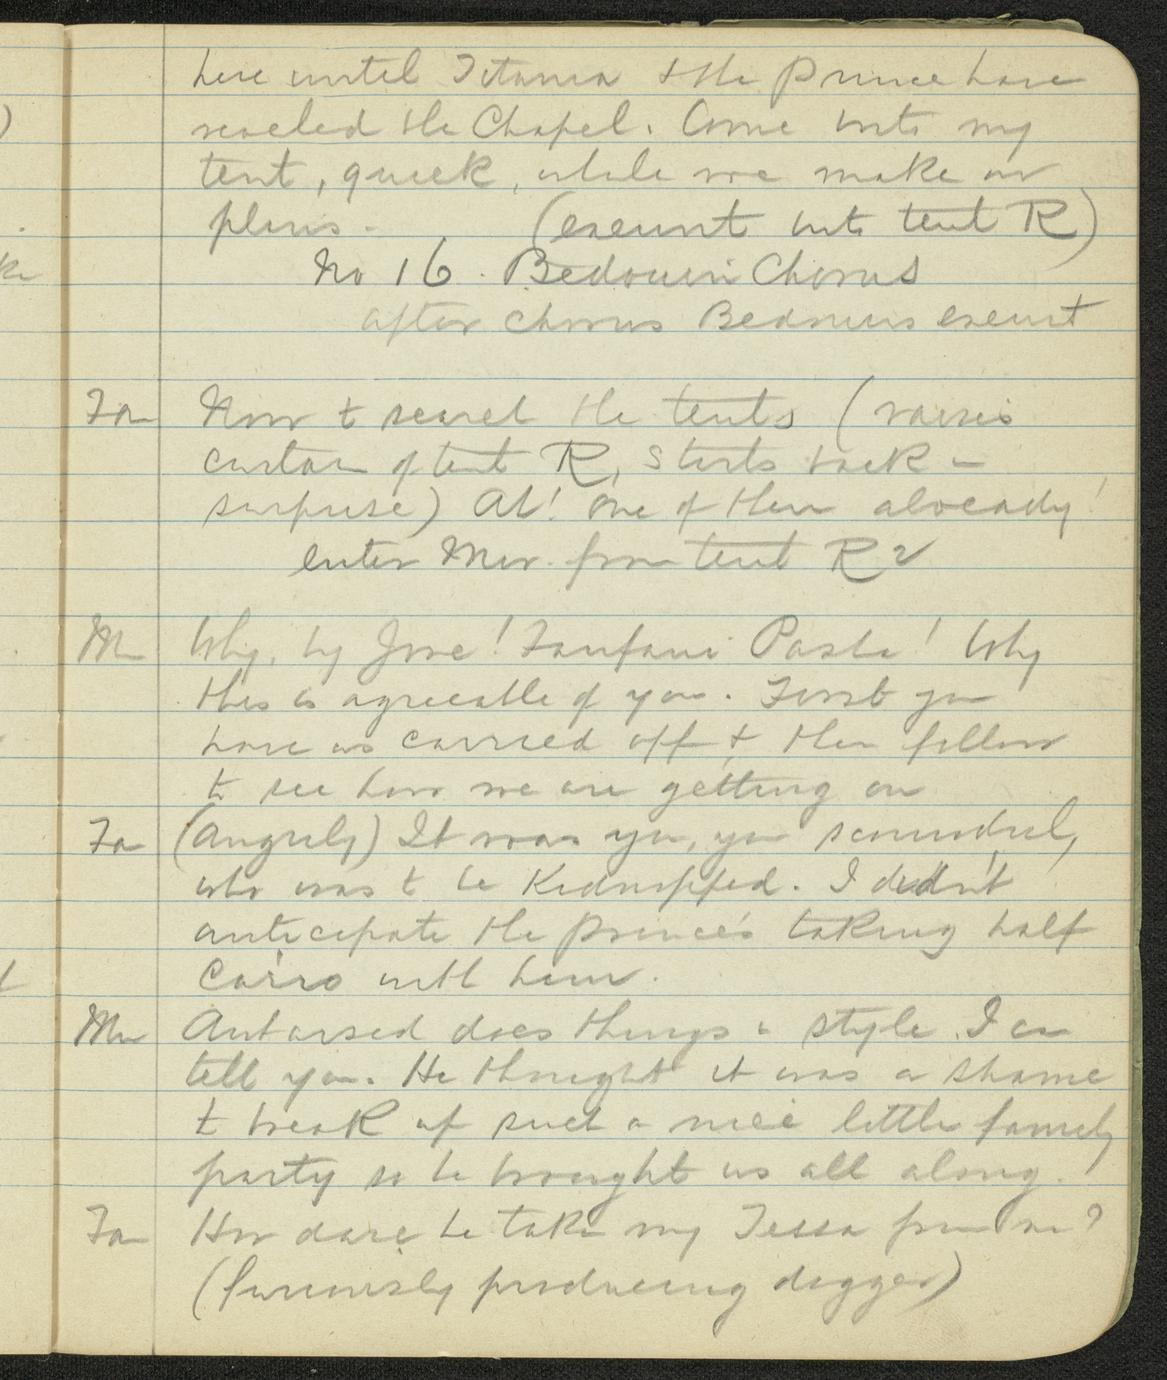 here until Titania & the Prince have
reached the Chapel. Come into my
tent, quick, while we make our
plans. (exeunt into tent R)
No 16. Bedouin Chorus
after chorus Bedouins exeunt
Fan Now to search the tents (raises
curtain of tent R, starts back in
surprise) Ah! One of them already!
enter Mer. from tent R 2
Mer Why, by Jove! Fanfani Pasha! Why
this is agreeable of you. First you
have us carried off & then follow
to see how we are getting on
Fan (Angrily) It was you, you scoundrel,
who was to be kidnapped. I didn't
anticipate the Prince's taking half
Cairo with him.
Mer does things in style I can
tell you. He thought it was a shame
to break up such a nice little family
party so he brought us all along.
Fan How dare he take my Tessa from me?
(furiously producing dagger)